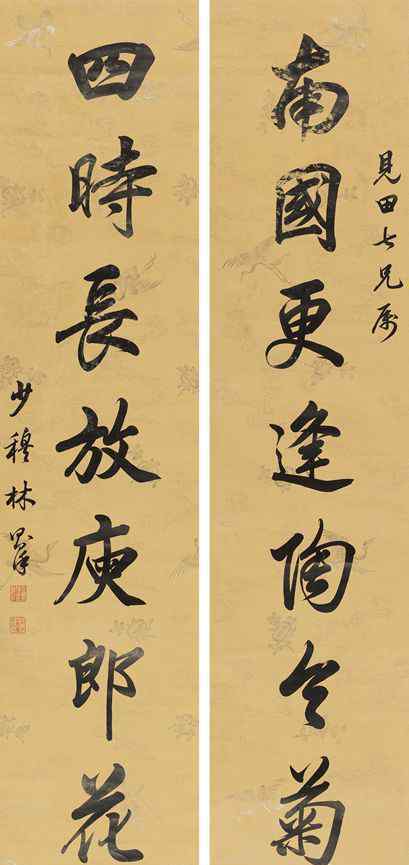 見田七兄屬
南國更逢陶令菊
四時長放庾郎花
少穆林則徐